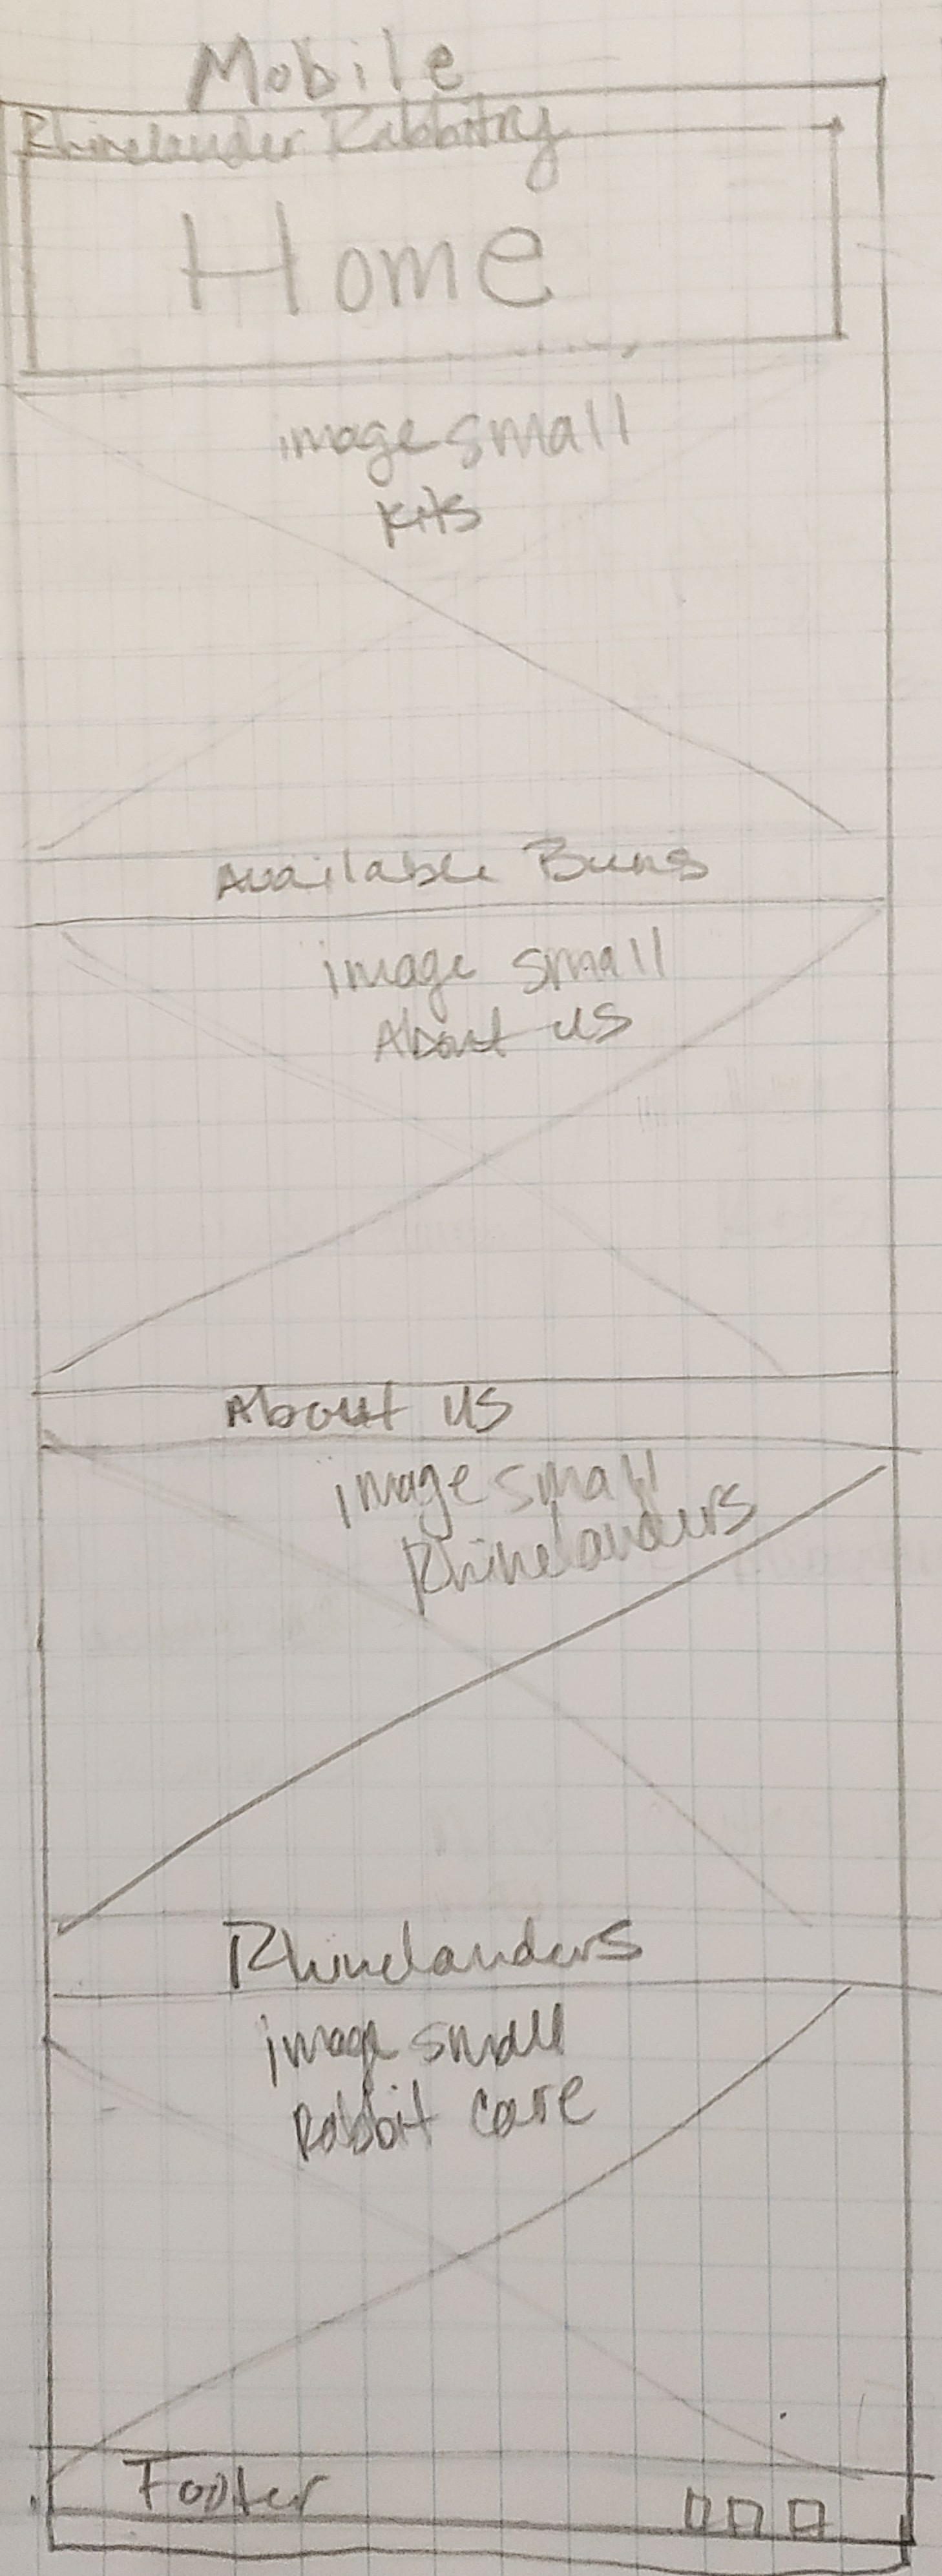 Mobile
Rhinelander Rabbitry
Home
image small
kits
Available Buns
image small
About us
About us
image small
Rhinelanders
Rhinelanders
image small
Rabbit Care
Footer